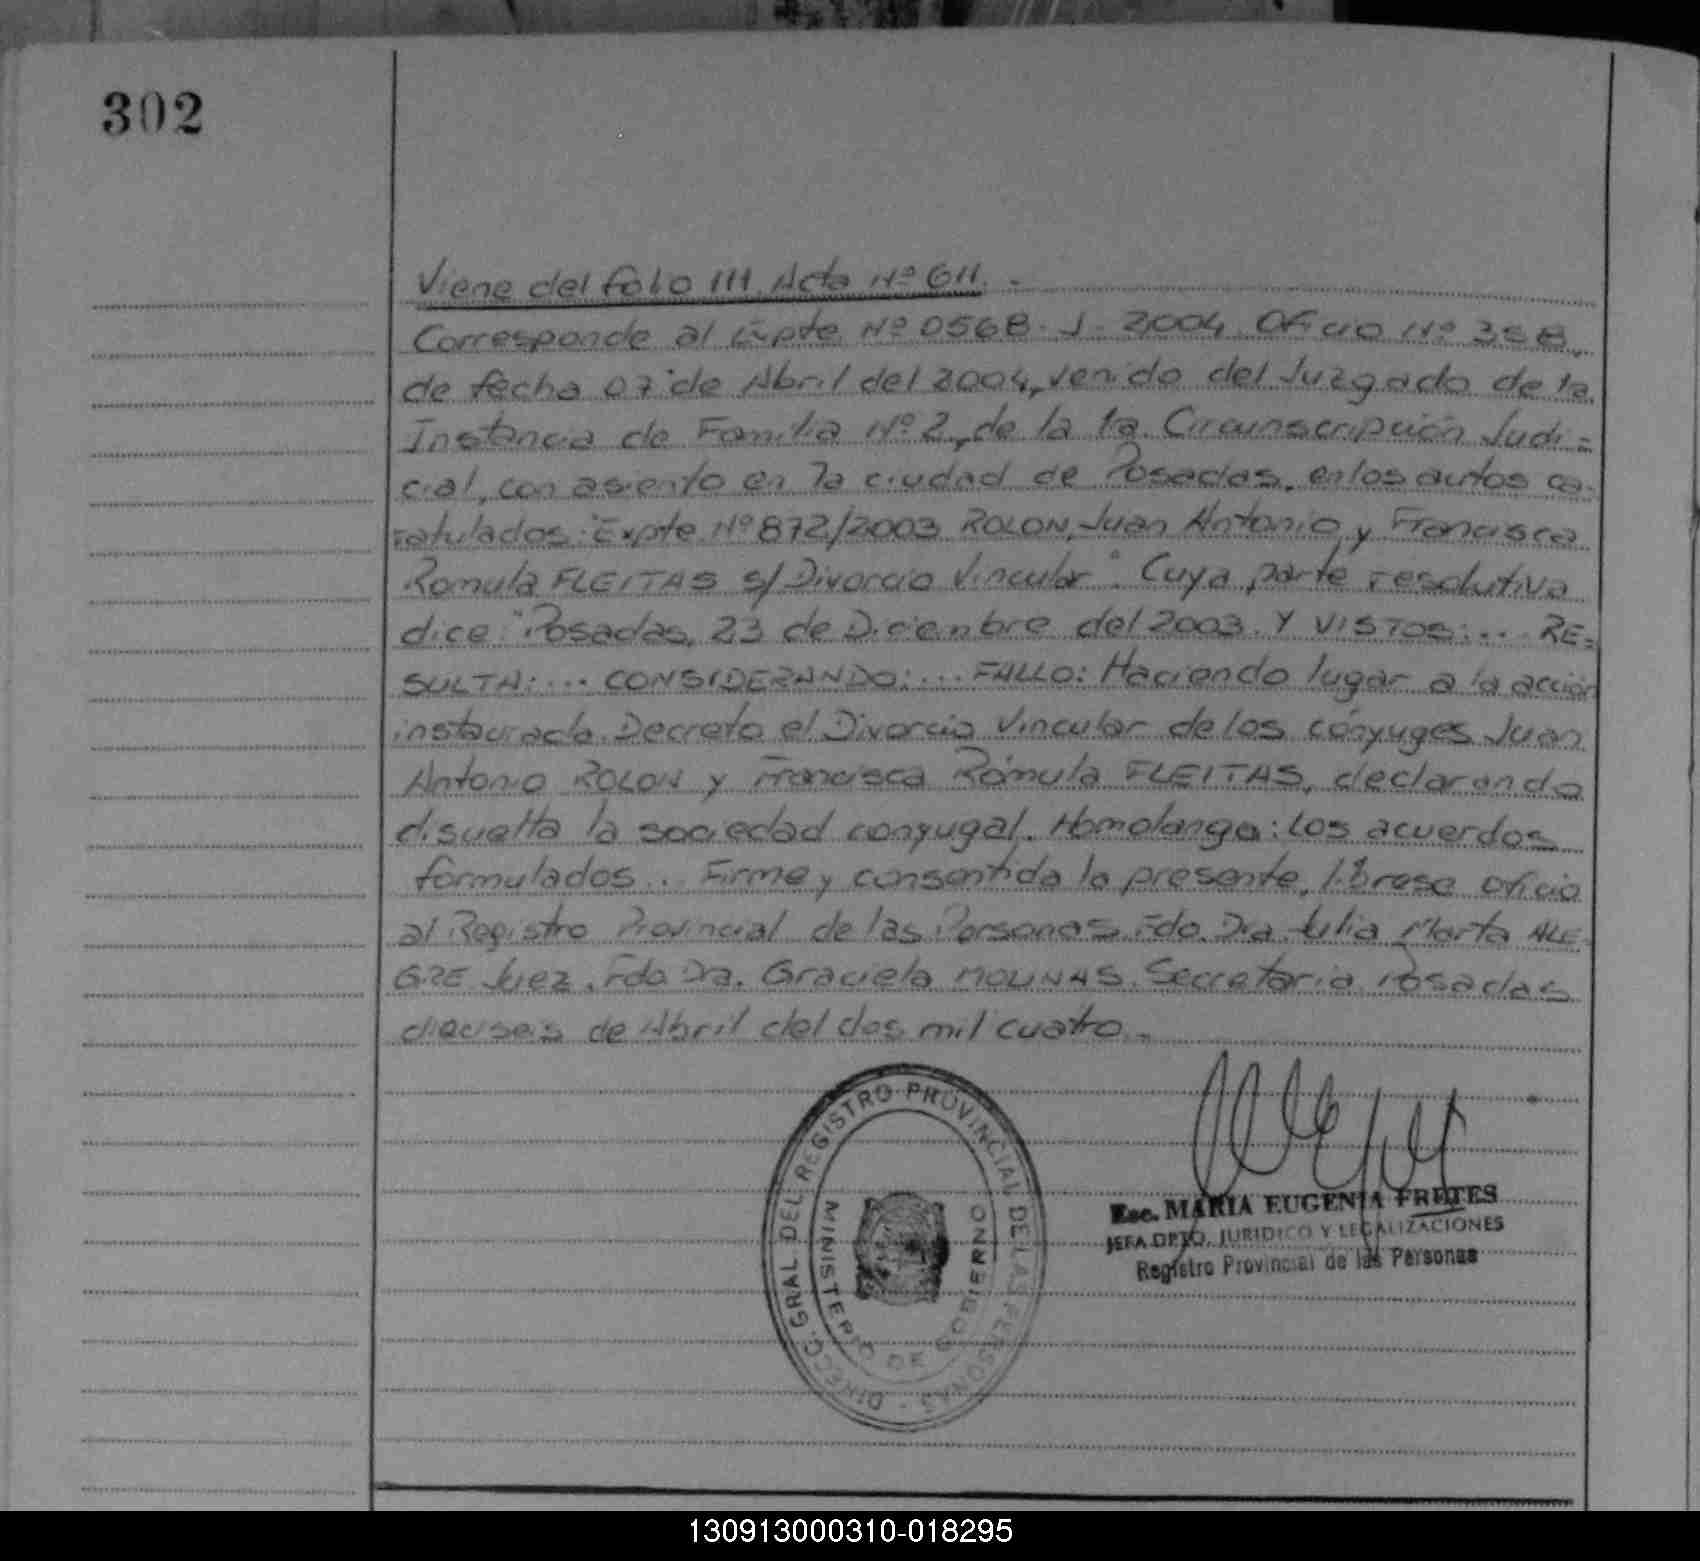 302
Viene del folio 111. Acta Nº 611. -
Corresponde al Expte Nº 0568. J. 2004. Oficio Nº 358,
de fecha 07 de Abril del 2004, venido del Juzgado de 1a.
Instancia de Familia Nº 2, de la 1a. Circunscripción Judi=
cial, con asiento en la ciudad de Posadas, en los autos ca-
ratulados: "Expte. Nº 872/2003 ROLON, Juan Antonio y Francisca
Romula FLEITAS s/ Divorcio Vincular". Cuya parte resolutiva
dice: "Posadas, 23 de Diciembre del 2003. Y VISTOS:... RE=
SULTA:... CONSIDERANDO:... FALLO: Haciendo lugar a la acción
instaurada. Decreto el Divorcio Vincular de los cónyuges Juan
Antonio ROLON y Francisca Rómula FLEITAS, declarando
disuelta la sociedad conyugal. Homolango: los acuerdos
formulados... Firme y consentida la presente, líbrese oficio
al Registro Provincial de las Personas. Fdo. Dra. Julia Marta ALE-
GRE Juez. Fdo Dra. Graciela MOLINAS. Secretaria. Posadas
dieciseis de Abril del dos mil cuatro.-
DIRECC. GRAL DEL REGISTRO PROVINCIAL DE LAS PERSONAS -
MINISTERIO DE GOBIERNO
Esc. MARIA EUGENIA FRETES
JEFA DPTO. JURIDICO Y LEGALIZACIONES
Registro Provincial de las Personas
130913000310-018295